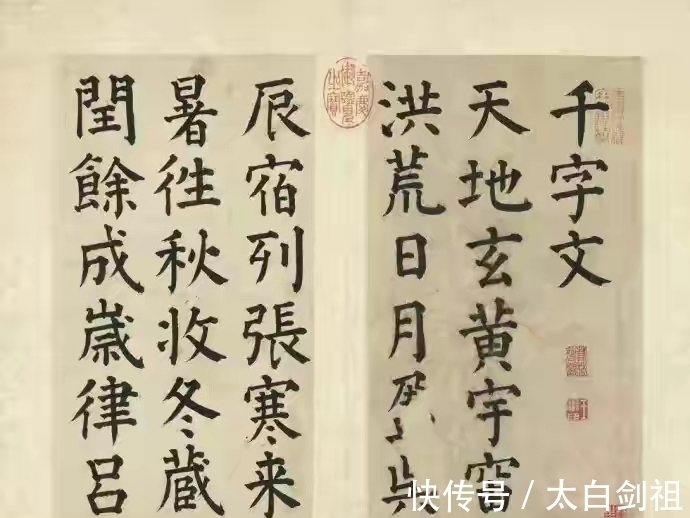 千字文
天地玄黄宇
洪荒日月
辰宿列張寒来
暑徃秋收冬蔵
閏餘成嵗律呂
快传号 / 太白剑祖